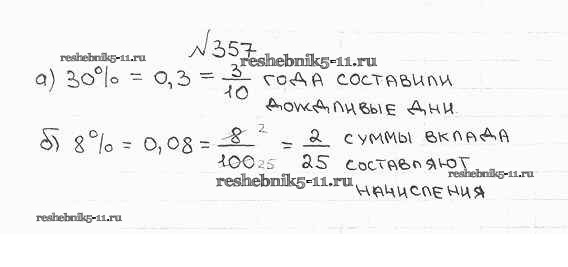 №357
reshebnik5-11.ru reshebnik5-11.ru
а) 30% = 0,3 = 3/10 года составили
дождливые дни.
б) 8% = 0,08 = 8 2/100 25 = 2/25 суммы вклада
составляют
reshebnik5-11.ru reshebnik5-11.ru
начисления
reshebnik5-11.ru